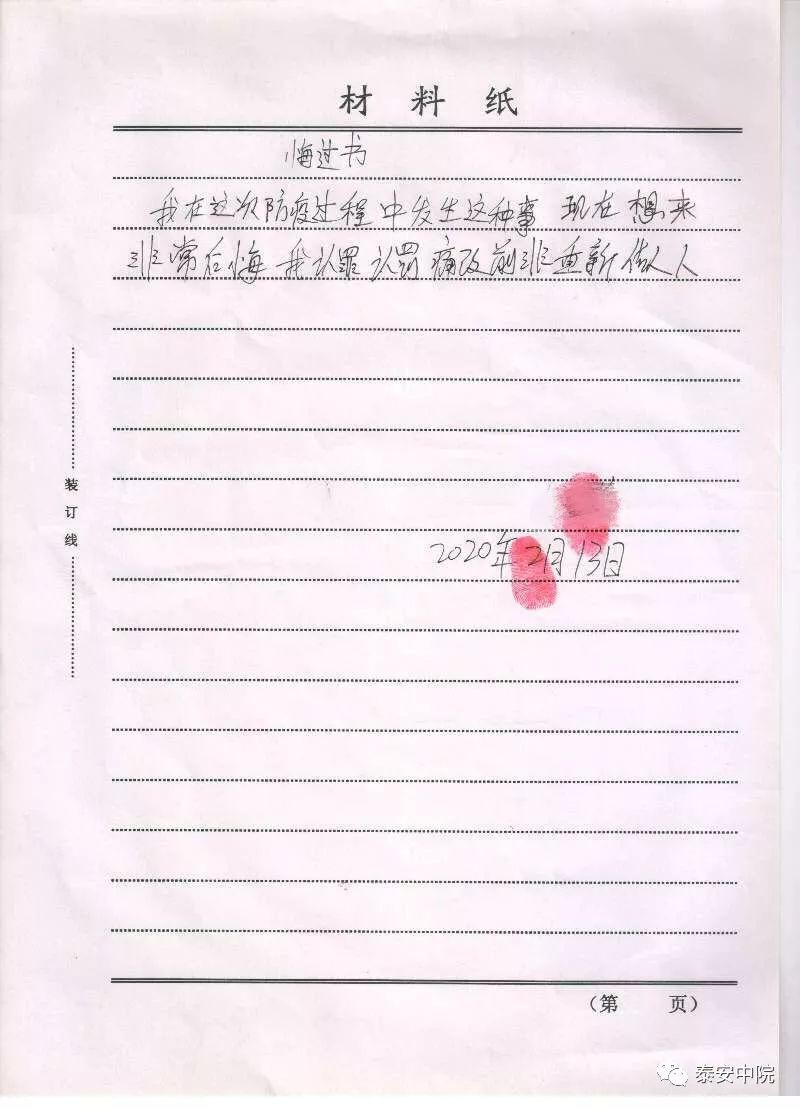 材料纸
悔过书
我在这次防疫过程中发生这种事 现在想来
非常后悔 我认罪认罚 痛改前非重新做人
装订线
2020年2月13日
（第 页）
泰安中院